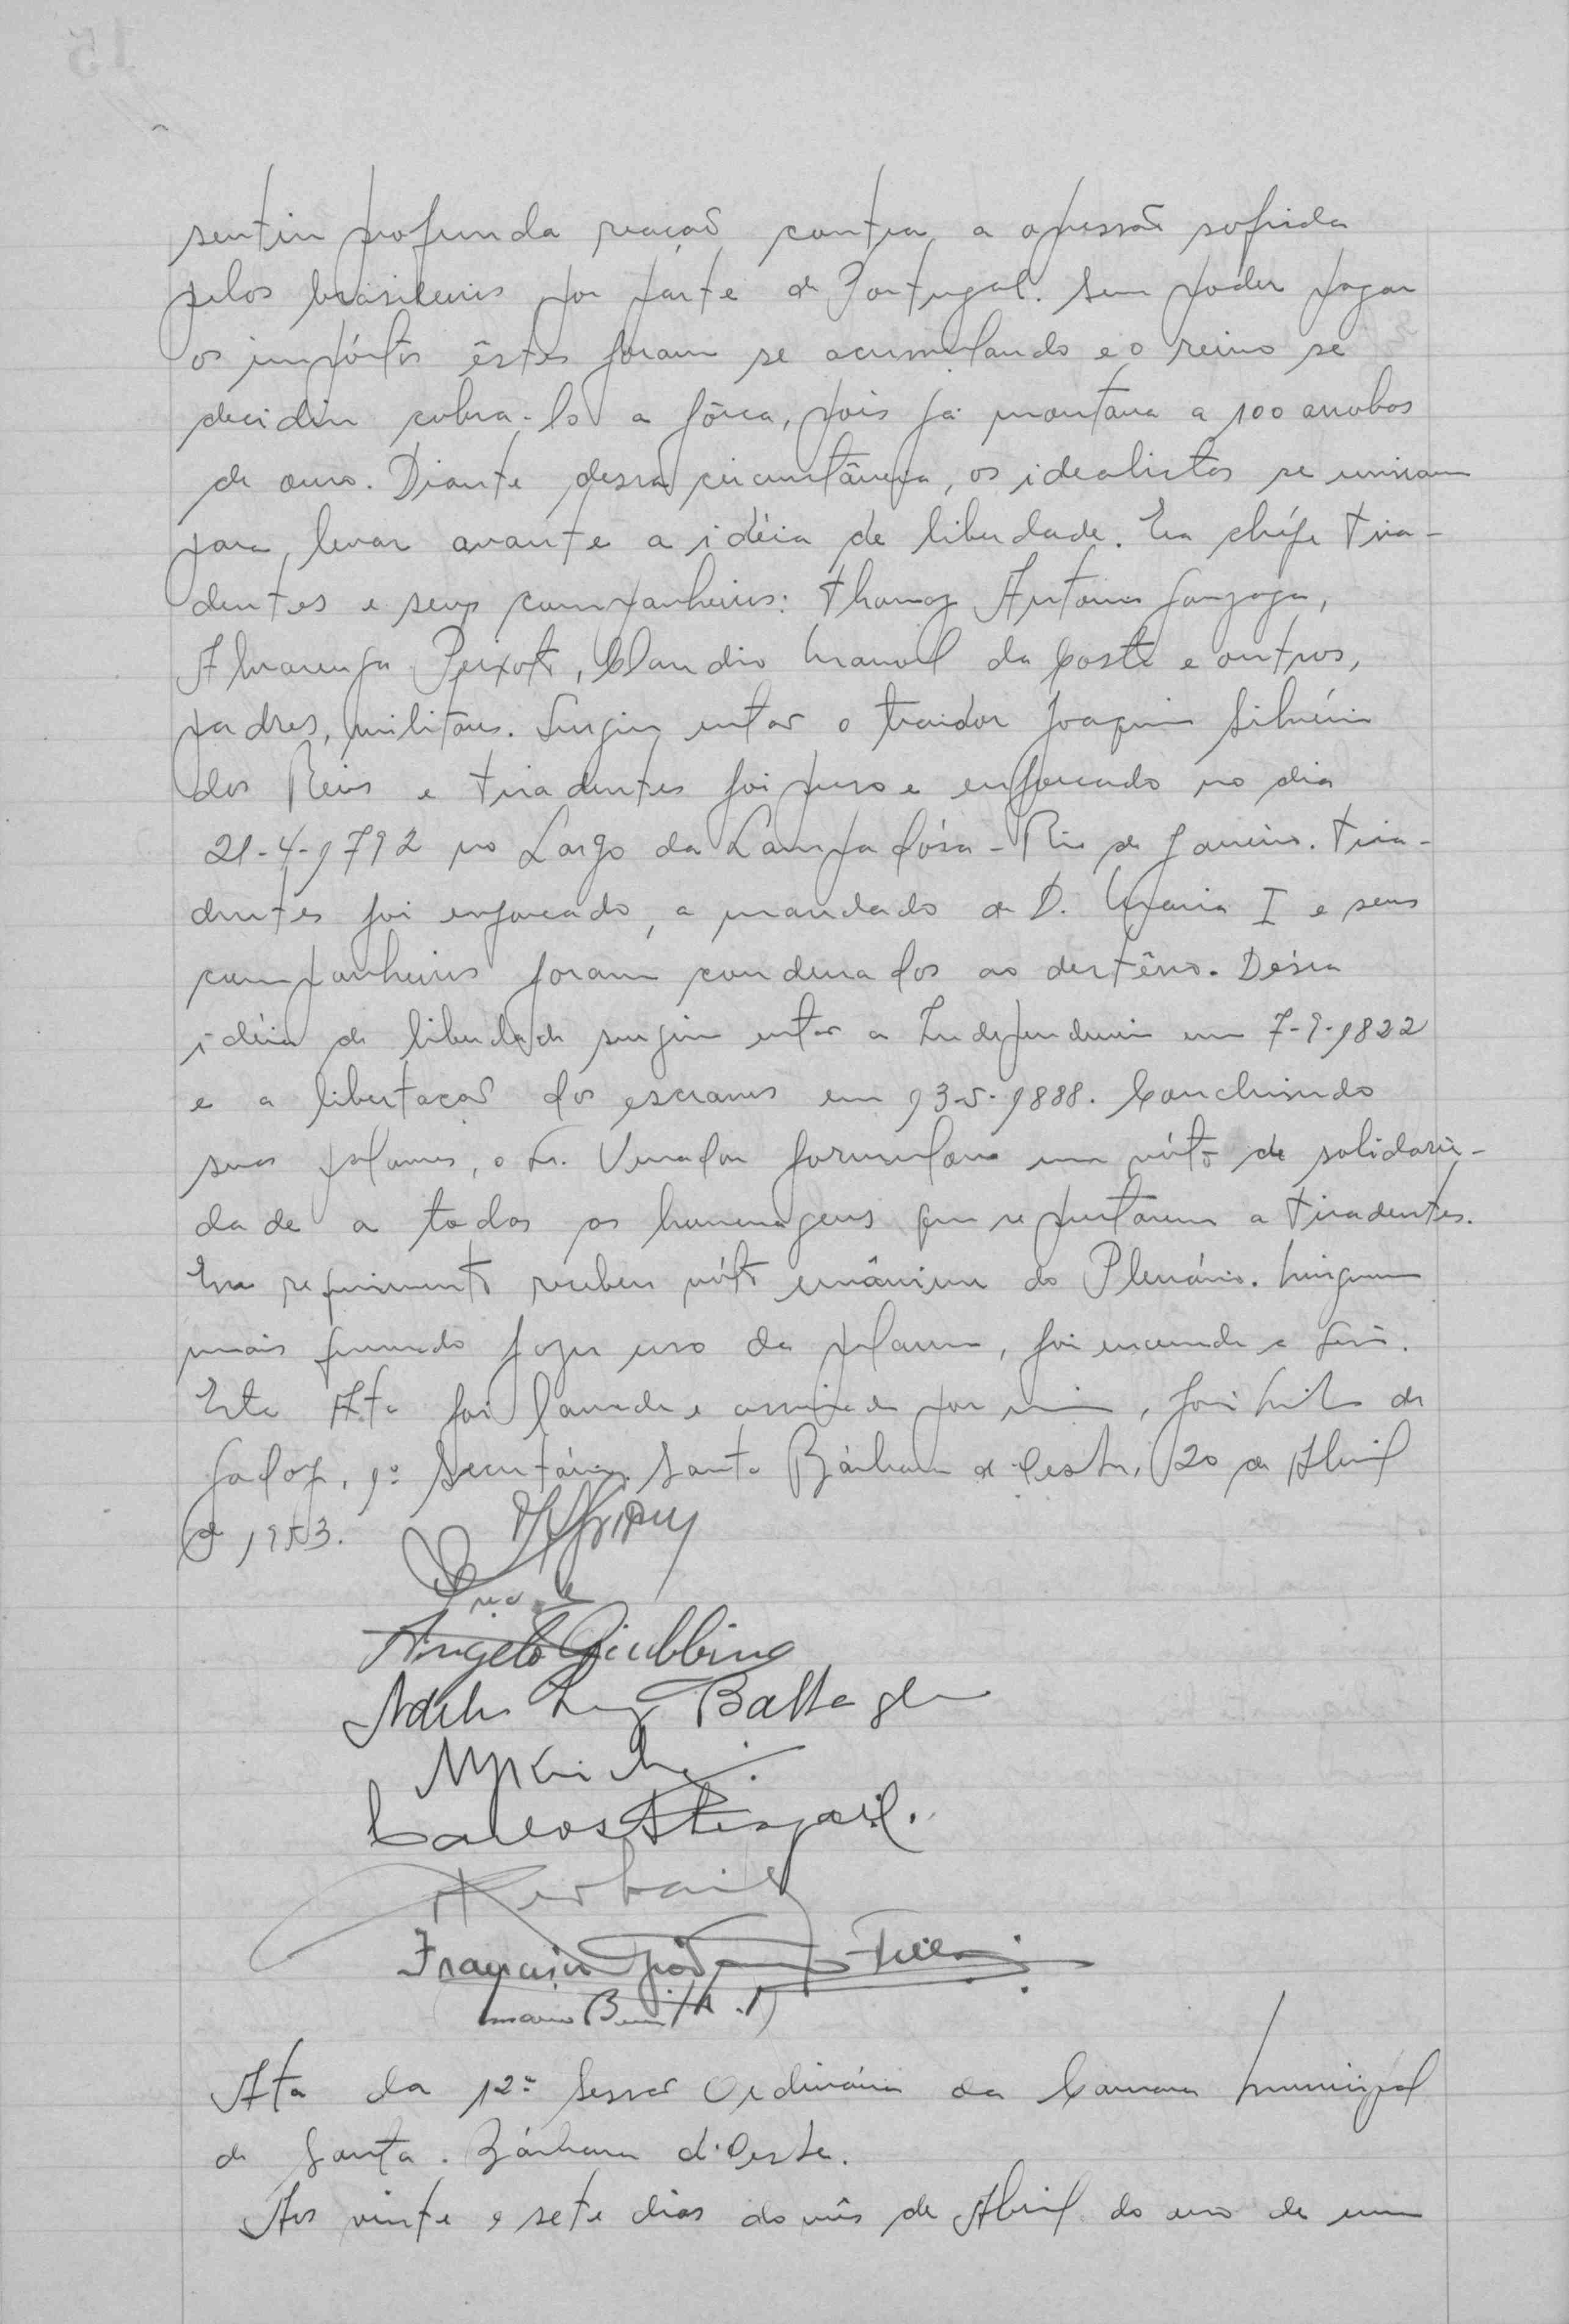 sentiu profunda reação contra a opressão sofrida
pelos brasileiros por parte de Portugal. Sem poder pagar
os impóstos êstes foram se acumulando e o reino se
decidiu cobra-lo a fôrca, pois já montava a 100 arrobas
de ouro. Diante dessa circunstância, os idealistas se uniram
para levar avante a idéia de liberdade. Era chéfe Tira-
dentes e seus companheiros: Thomaz Antonio Gonzaga,
Alvarenga Peixoto, Claudio Manoel da Costa e outros,
padres, militares. Surgiu então o traidor Joaquim Silvério
dos Reis e Tiradentes foi preso e enforcado no dia
21-4-1792 no Largo da Lampadósa - Rio de Janeiro. Tira-
dentes foi enforcado, a mandado de D. Maria I e seus
companheiros foram condenados ao destêrro. Déssa
idéia de liberdade surgiu então a Independencia em 7-9-1822
e a libertação dos escravos em 13-5-1888. Concluindo
suas palavras, o Sr. Vereador formulava um vóto de solidarie-
dade a todas as homenagens que se prestarem a Tiradentes.
Esse requerimento recebeu vóto unânime do Plenário. Ninguem
mais querendo fazer uso da palavra, foi encerrada a Sessão.
Esta Ata foi lavrada e assinada por mim, de
1º Secretário. Santa Bárbara d'Oeste, 20 de Abril
de 1953.
Angelo Giubbina
Battagl
Carlos Steagall.
Francisco
Mario
Ata da 12ª Sessão Ordinária da Camara Municipal
de Santa Bárbara d'Oeste.
Aos vinte e sete dias do mês de Abril do ano de um
15